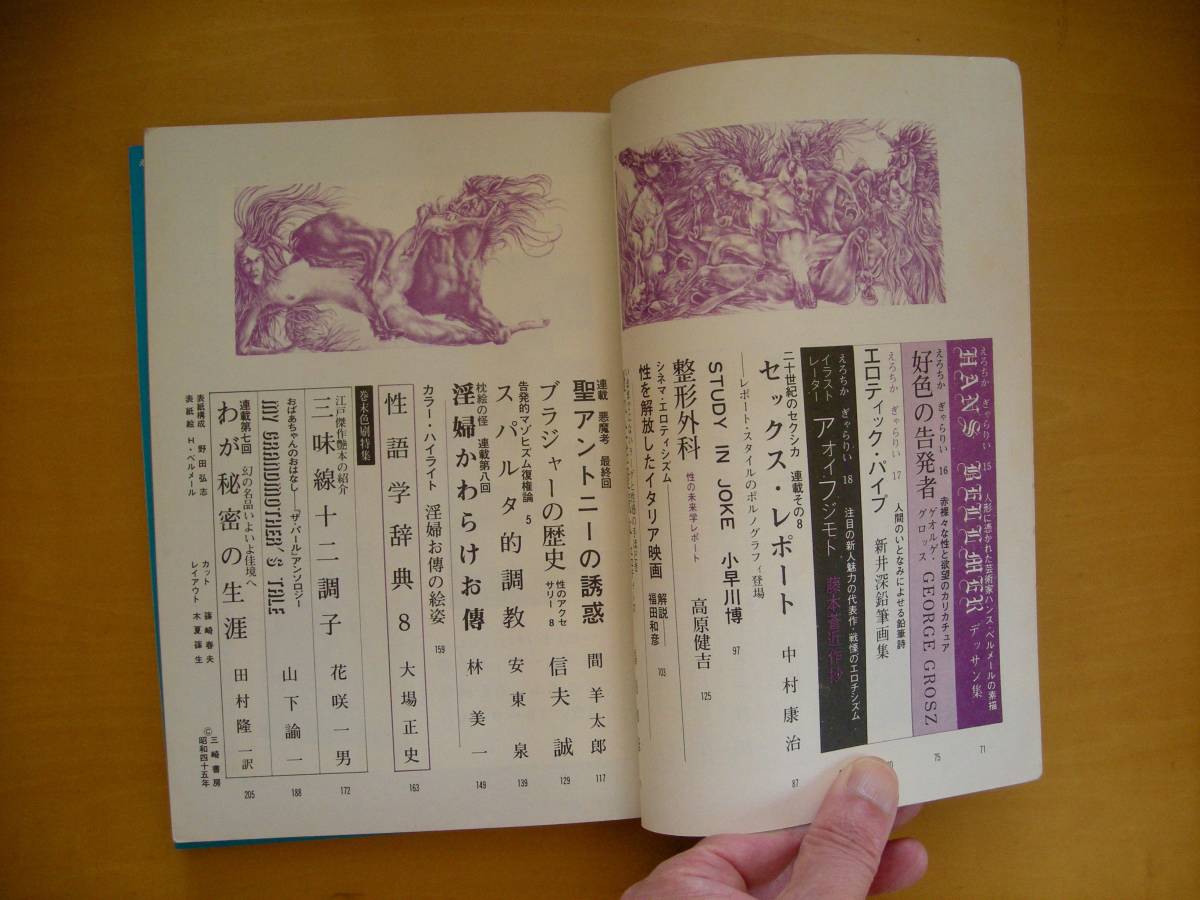 えろちか ぎゃらりい 15 人形に憑かれた芸術家ハンス・ベルメールの素描
HANS BELLMER デッサン集 71
えろちか ぎゃらりい 16 赤裸々な性と欲望のカリカチュア
好色の告発者 ゲオルゲ・グロッス GEORGE GROSZ 75
えろちか ぎゃらりい 17 人間のいとなみによせる鉛筆詩
エロティック・パイプ 新井深鉛筆画集
えろちか ぎゃらりい 18 注目の新人魅力の代表作・戦慄のエロチシズム
イラストレーター アオイ・フジモト 藤本蒼近作抄
二十世紀のセクシカ 連載その8
セックス・レポート 中村康治 87
―レポート・スタイルのポルノグラフィ登場
STUDY IN JOKE 小早川博 97
整形外科 性の未来学レポート 高原健吉 125
シネマ・エロティシズム
性を解放したイタリア映画 解説 福田和彦 103
連載 悪魔考 最終回
聖アントニーの誘惑 間羊太郎 117
ブラジャーの歴史 性のアクセサリー8 信夫誠 129
告発的マゾヒズム復権論 5
スパルタ的調教 安東泉 139
枕絵の怪 連載第八回
淫婦かわらけお傳 林美一 149
カラー・ハイライト 淫婦お傳の絵姿 159
性語学辞典 8 大場正史 163
巻末色刷特集
江戸傑作艶本の紹介
三味線十二調子 花咲一男 172
おばあちゃんのおはなし―『ザ・パール』アンソロジー
MY GRANDMOTHER'S TALE 山下諭一 188
連載第七回 幻の名品いよいよ佳境へ
わが秘密の生涯 田村隆一訳 205
表紙構成 野田弘志
表紙絵 H・ベルメール
カット 篠崎春夫
レイアウト 木夏篠生
©三崎書房
昭和四十五年